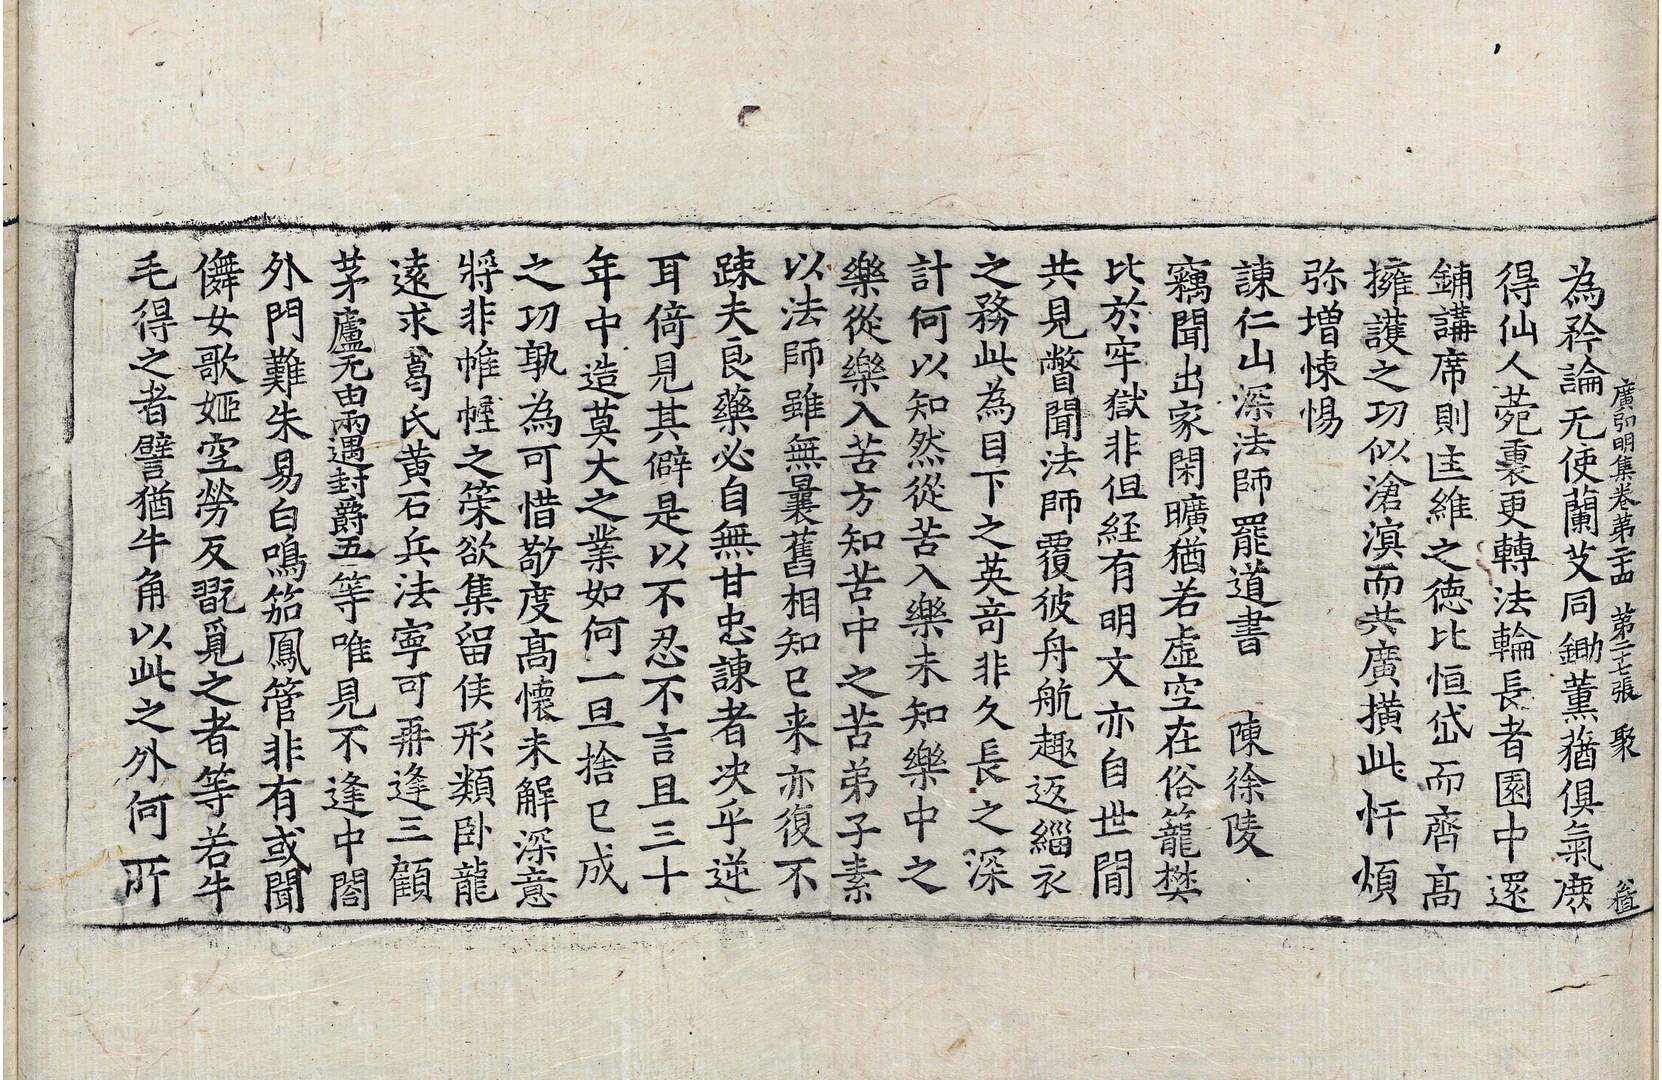 廣弘明集卷第二十四 第二十七張 聚
為矜論无使蘭艾同鋤薰猶俱氣庶
得仙人菀裏更轉法輪長者園中還
鋪講席則匡維之徳比恒岱而齊髙
擁護之功似滄溟而共廣撗此忓煩
弥增悚惕
諌仁山深法師罷道書 陳徐陵
竊聞出家閑曠猶若虛空在俗籠樊
比於牢獄非但経有明文亦自世間
共見瞥聞法師覆彼舟航趣返緇衣
之務此為目下之英竒非久長之深
計何以知然從苦入樂未知樂中之
樂從樂入苦方知苦中之苦弟子素
以法師雖無曩舊相知已来亦復不
踈夫良藥必自無甘忠諌者决乎逆
耳倚見其僻是以不忍不言且三十
年中造莫大之業如何一旦捨已成
之功孰為可惜敬度髙懷未解深意
將非帷幄之策欲集留侯形類卧龍
遠求葛氏黄石兵法寧可再逢三顧
茅廬无由兩遇封爵五等唯見不逢中閤
外門難朱易白鳴笳鳳管非有或聞
儛女歌姬空勞反翫覓之者等若牛
毛得之者譬猶牛角以此之外何所